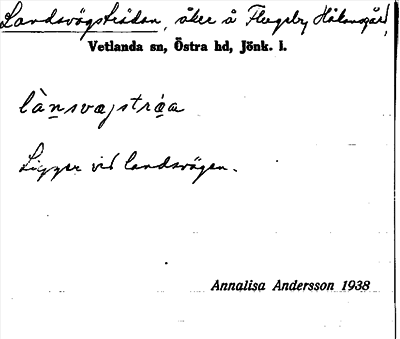 Landsvägsträdan, åker å Flugeby Håkansgård,
Vetlanda sn, Östra hd, Jönk. l.
lànsvægstrá̱a
Ligger vid landsvägen.
Annalisa Andersson 1938